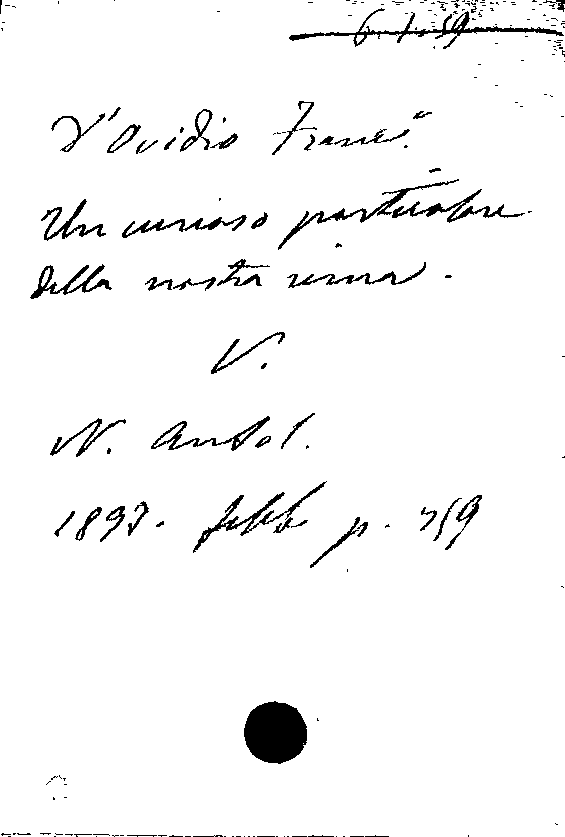 6. 1. 59
D'Ovidio Franc.º
Un curioso particolare
della nostra rima.
V.
N. Antol.
1897. febb. p. 759